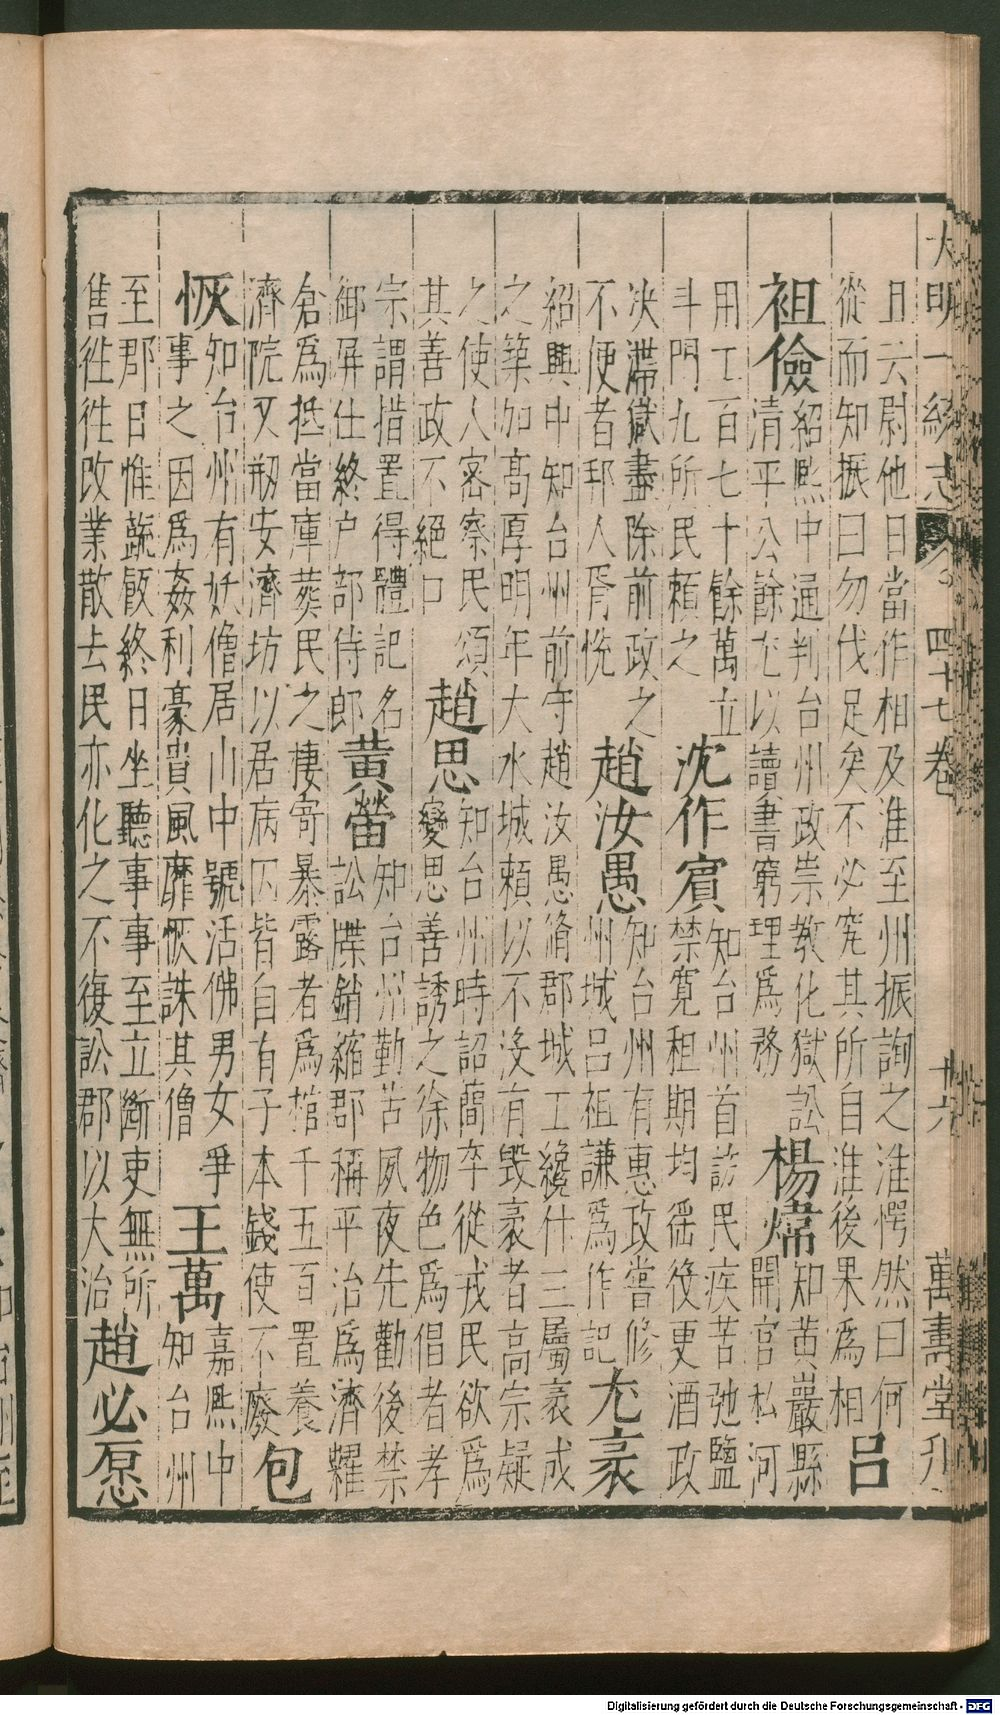 大明一統志 四十七卷 十六 萬壽堂刋
且云尉他日當作相及淮至州振詢之淮愕然曰何
從而知振曰勿伐足矣不必究其所自淮後果爲相
呂
祖儉
紹熙中通判台州政崇教化獄訟
清平公餘尤以讀書窮理爲務
楊煒
知黄巖縣
開官私河
用工百七十餘萬立
斗門九所民賴之
沈作賔
知台州首訪民疾苦弛鹽
禁寛租期均徭役更酒政
决滯獄盡除前政之
不便者邦人胥悅
趙汝愚
知台州有惠政嘗修
州城呂祖謙爲作記
尤袤
紹興中知台州前守趙汝愚脩郡城工纔什三屬袤成
之築加高厚明年大水城賴以不没有毀袤者高宗疑
之使人密察民頌
其善政不絕口
趙思
知台州時詔蕳卒從戎民欲爲
變思善誘之徐物色爲倡者孝
宗謂措置得體記名
御屏仕終户部侍郎
黄䓨
知台州勤苦夙夜先勸後禁
訟牒銷縮郡稱平治爲濟糶
倉爲抵當庫葬民之棲寄暴露者爲棺千五百置養
濟院又剏安濟坊以居病囚皆自有子本錢使不廢
包
恢
知台州有妖僧居山中號活佛男女爭
事之因爲姦利豪貴風靡恢誅其僧
王萬
嘉熙中
知台州
至郡日惟蔬飯終日坐聽事事至立斷吏無所
售徃徃改業散去民亦化之不復訟郡以大治
趙必愿
Digitalisierung gefördert durch die Deutsche Forschungsgemeinschaft - DFG